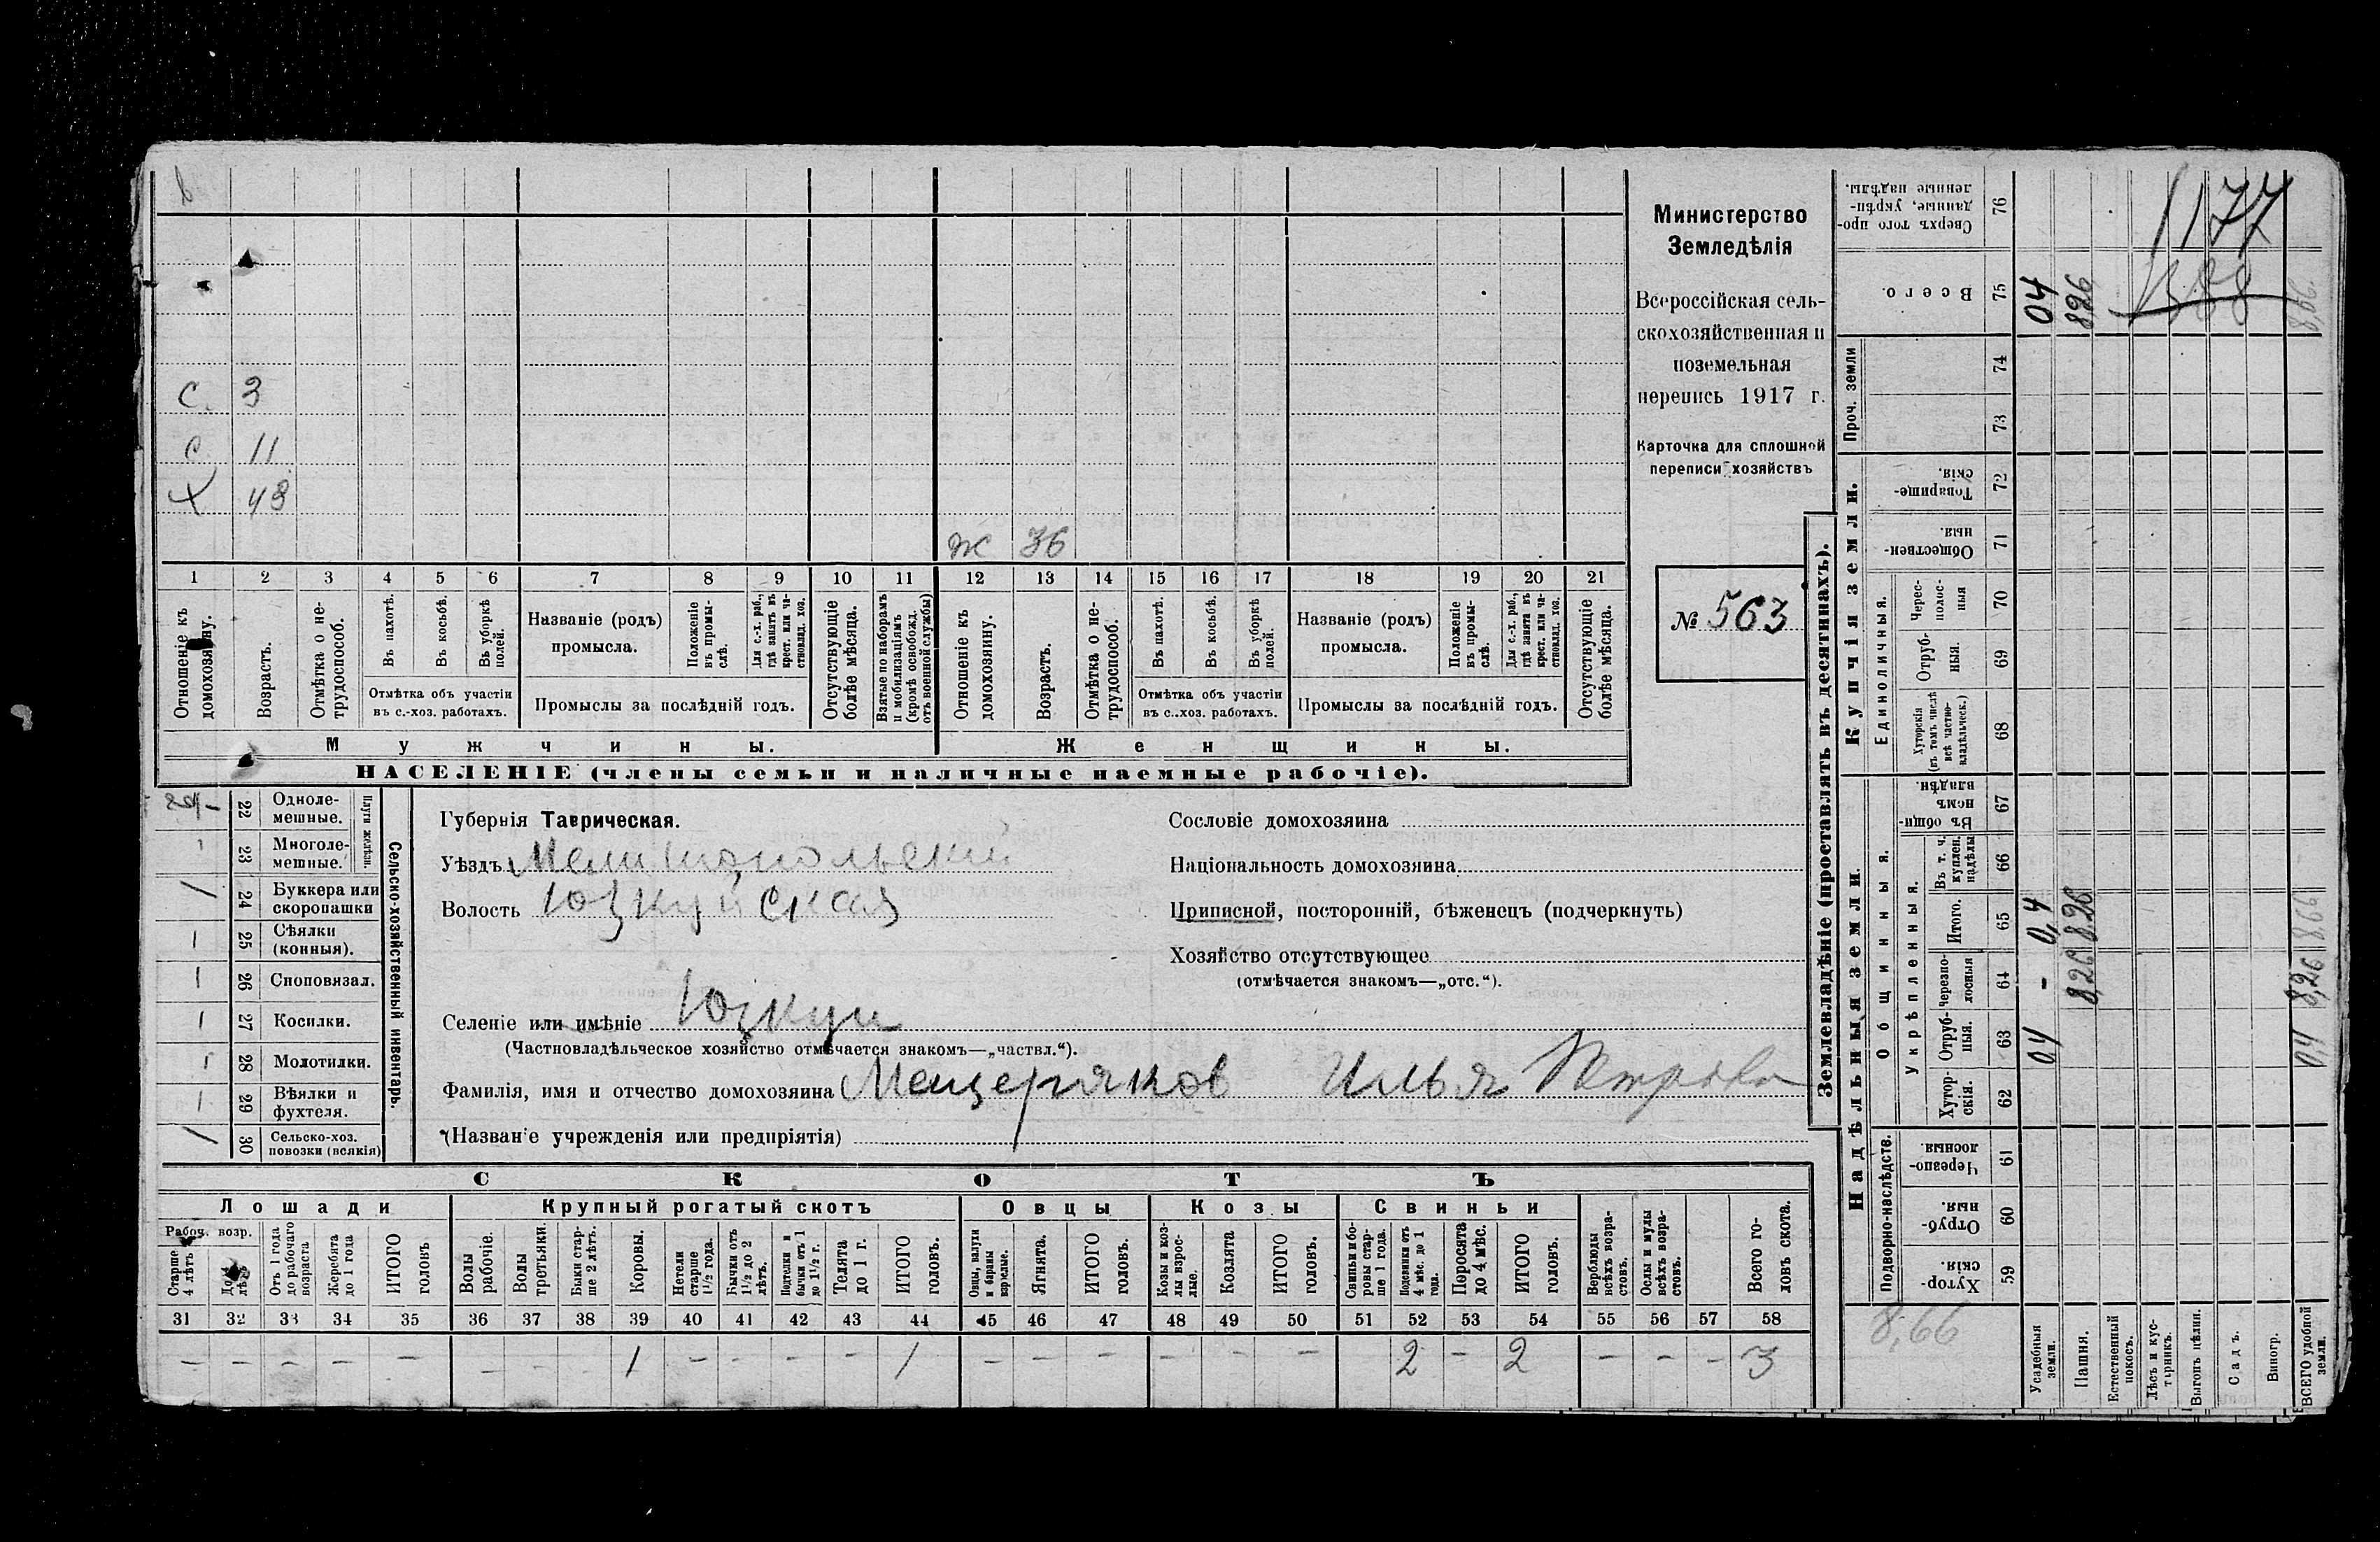 с. 3
с 11
Х 43
ж 36
1 2 3 4 5 6 7 8 9 10 11 12 13 14 15 16 17 18 19 20 21
Отношеніе къ домохозяину.
Возрастъ.
Отмѣтка о не-трудоспособ.
Въ пахотѣ.
Въ косьбѣ.
Въ уборкѣ полей.
Отмѣтка объ участіи
въ с.-хоз. работахъ.
Названіе (родъ)
промысла.
Положеніе въ промы-слѣ.
Для с.-х. раб., гдѣ занятъ въ крест. или ча-стновлад. хоз.
Промыслы за послѣдній годъ.
Отсутствующіе болѣе мѣсяца.
Взятые по наборамъ и мобилизаціямъ (кромѣ освобожд. отъ военной службы)
Отношеніе къ домохозяину.
Возрастъ.
Отмѣтка о не-трудоспособ.
Въ пахотѣ.
Въ косьбѣ.
Въ уборкѣ полей.
Отмѣтка объ участіи
въ с.-хоз. работахъ.
Названіе (родъ)
промысла.
Положеніе въ промы-слѣ.
Для с.-х. раб., гдѣ занята въ крест. или ча-стновлад. хоз.
Промыслы за послѣдній годъ.
Отсутствующіе болѣе мѣсяца.
Мужчины. Женщины.
НАСЕЛЕНІЕ (члены семьи и наличные наемные рабочіе).
Министерство
Земледѣлія
Всероссійская сель-
скохозяйственная и
поземельная
перепись 1917 г.
Карточка для сплошной
переписи хозяйствъ
№ 563
Сельско-хозяйственный инвентарь.
Плуги желѣзн.
22 Однолемешные.
23 Многоле-мешные.
24 Буккера или скоропашки
25 Сѣялки (конныя).
26 Сноповязал.
27 Косилки.
28 Молотилки.
29 Вѣялки и фухтеля.
30 Сельско-хоз. повозки (всякія)
Губернія Таврическая.
Уѣздъ Мелитопольский
Волость Юзкуйская
Селеніе или имѣніе Юзкуи
(Частновладѣльческое хозяйство отмѣчается знакомъ—„частвл.“).
Фамилія, имя и отчество домохозяина Мещеряков Илья Петрова
(Названіе учрежденія или предпріятія)
Сословіе домохозяина
Національность домохозяина
Приписной, посторонній, бѣженецъ (подчеркнуть)
Хозяйство отсутствующее
(отмѣчается знакомъ—„отс.“).
СКОТЪ
Лошади Крупный рогатый скотъ Овцы Козы Свиньи
Рабоч. возр.
Старше 4 лѣтъ
До 4 лѣтъ
Отъ 1 года до рабочаго возраста
Жеребята до 1 года
ИТОГО головъ
Волы рабочіе.
Волы третьяки.
Быки стар-ше 2 лѣтъ.
Коровы.
Нетели старше 1½ года.
Бычки отъ 1½ до 2 лѣтъ.
Подтелки и бычки отъ 1 до 1½ г.
Телята до 1 г.
ИТОГО головъ.
Овцы, валухи и бараны взрослые.
Ягнята.
ИТОГО головъ.
Козы и коз-лы взрос-лые.
Козлята
ИТОГО головъ.
Свиньи и бо-ровы стар-ше 1 года.
Подсвинки отъ 4 мѣс. до 1 года.
Поросята до 4 мѣс.
ИТОГО головъ.
Верблюды всѣхъ возра-стовъ.
Ослы и мулы всѣхъ возра-стовъ.
Всего го-ловъ скота.
31 32 33 34 35 36 37 38 39 40 41 42 43 44 45 46 47 48 49 50 51 52 53 54 55 56 57 58
— — — — — — — — 1 — — — — 1 — — — — — — 2 — 2 — — — 3
Землевладѣніе (проставлять въ десятинахъ).
Надѣльныя земли.
Купчія земли.
Проч. земли
Подворно-наслѣдств.
Общинныя.
Укрѣпленныя.
Единоличныя.
Хутор-скія. 59
Отруб-ныя. 60
Черезпо-лосныя 61
Хутор-скія. 62
Отруб-ныя. 63
Черезпо-лосныя 64
Итого. 65
Въ т. ч. куплен. надѣлы 66
Въ общин-номъ владѣн. 67
Хуторскія (въ томъ числѣ всѣ частно-владѣльческ.) 68
Отруб-ныя. 69
Черес-полос-ныя 70
Обществен-ныя 71
Товарище-скія. 72
73
74
Всего. 75
Сверхъ того про-данные, укрѣп-ленные надѣлы. 76
Усадебныя земли. 04 - 0,4 04
Пашня. 8,26 8.26 8,26
Естественный покосъ.
Лѣсъ и кус-тарникъ.
Выгонъ цѣлин.
Садъ.
Виногр.
ВСЕГО удобной земли. 0,4 8,26 8.66 8,66.
8,66
1177